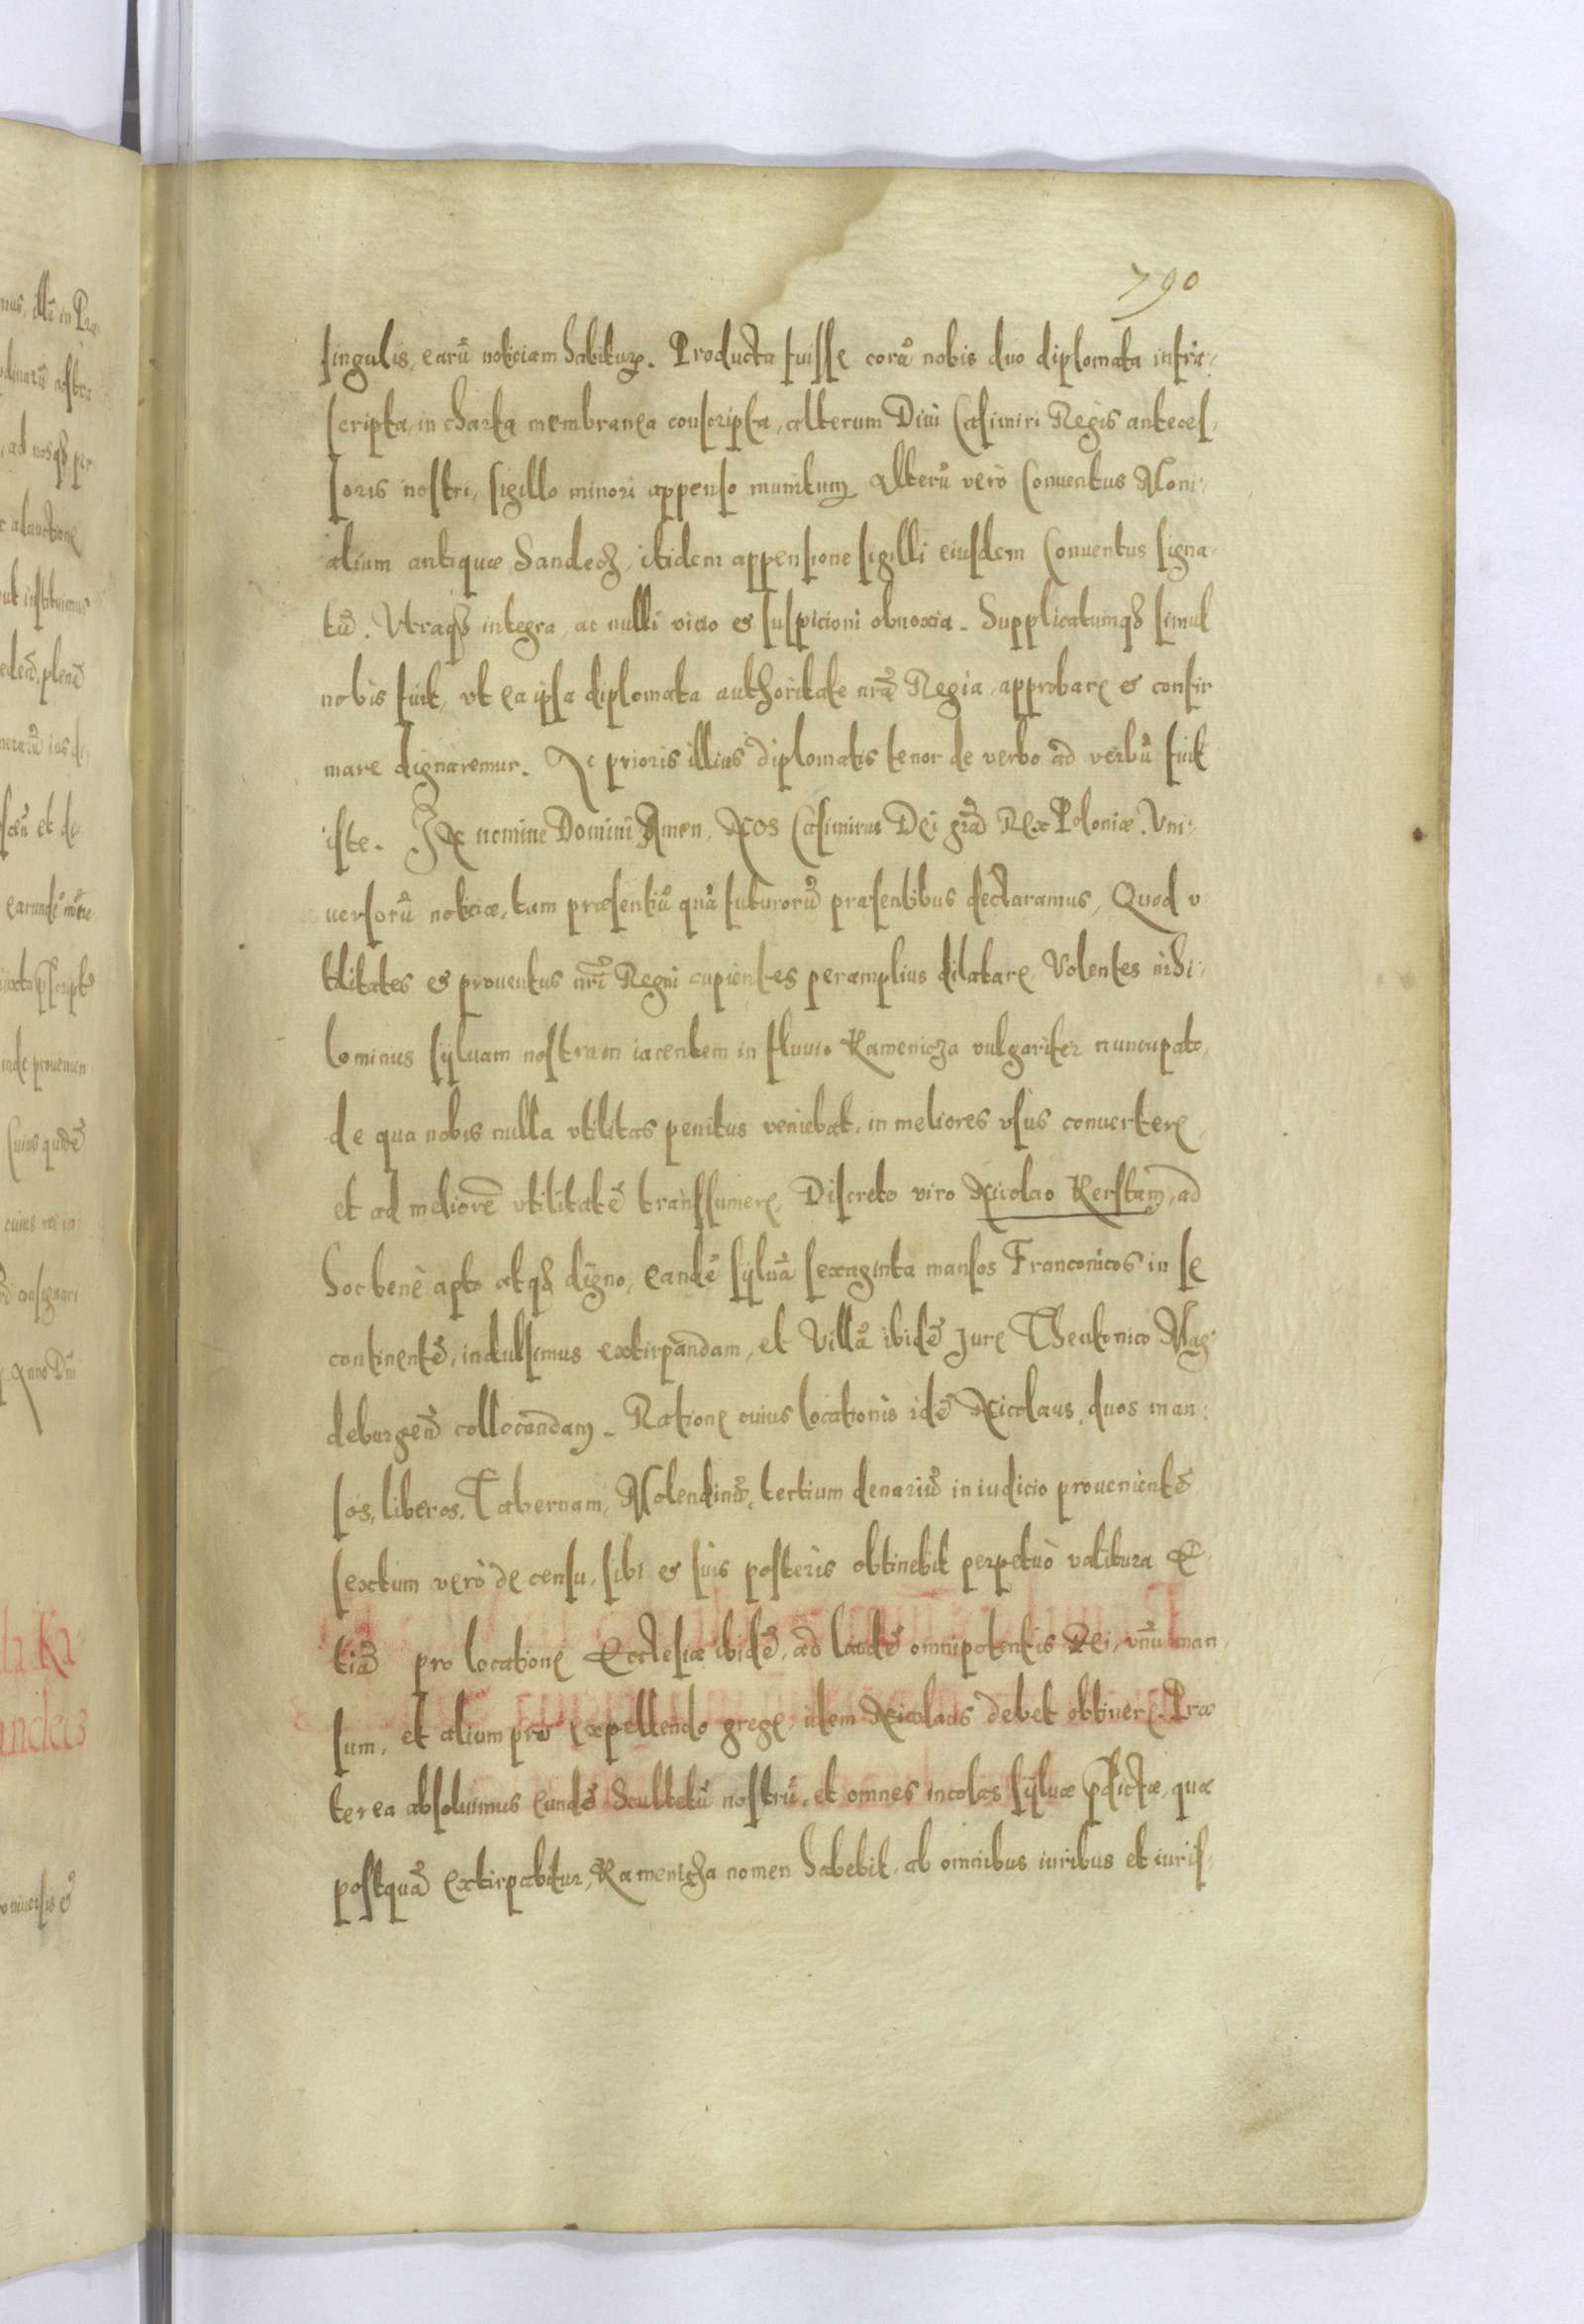 790
singulis, earũ noticiam habituris. Producta fuisse corã nobis duo diplomata infra-
scripta, in charta membranea conscripta, alterum Diui Casimiri Regis anteces-
soris nostri, sigillo minori appenso munitum Alterũ verò Conuentus Moni-
alium antiquæ Sandecz, itidem appensione sigilli eiusdem Conuentus signa-
tũ. Vtraqȝ integra, ac nulli vitio et suspicioni obnoxia. Supplicatumqȝ simul
nobis fuit, vt ea ipsa diplomata authoritate nrã Regia approbare et confir
mare dignaremur. Ac prioris illius diplomatis tenor de verbo ad verbũ fuit
iste. IN nomine Domini Amen, Nos Casimirus Dei grã Rex Poloniæ. Vni-
uersorũ noticiæ, tam præsentiũ quã futurorũ præsentibus declaramus, Quod v
tilitates et prouentus nrĩ Regni cupientes peramplius dilatare, Volentes nihi-
lominus syluam nostram iacentem in fluuio Kamenicza vulgariter nuncupato,
de qua nobis nulla vtilitas penitus veniebat, in meliores vsus conuertere,
et ad meliorẽ vtilitatẽ transsumere, Discreto viro Nicolao Kerstam, ad
hoc benè apto atqȝ digno, eandẽ syluã sexaginta mansos Franconicos in se
continentẽ, indulsimus extirpandam, et Villã ibidẽ Jure Theutonico Mag
deburgeñ collocandam. Ratione cuius locationis idẽ Nicolaus, duos man-
sos, liberos, Tabernam, Molendinũ, tertium denariũ in iudicio prouenientẽ
sextum verò de censu, sibi et suis posteris obtinebit perpetuò valitura E
tiã pro locatione Ecclesiæ ibidẽ, ad laudẽ omnipotentis Dei, vnũ man
sum, et alium pro expellendo grege, idem Nicolaus debet obtinere. Præ
terea absoluimus eundẽ Scultetũ nostrũ, et omnes incolas syluæ p̃dictæ, quæ
postquã extirpabitur, Kamenicza nomen habebit, ab omnibus iuribus et iuris-